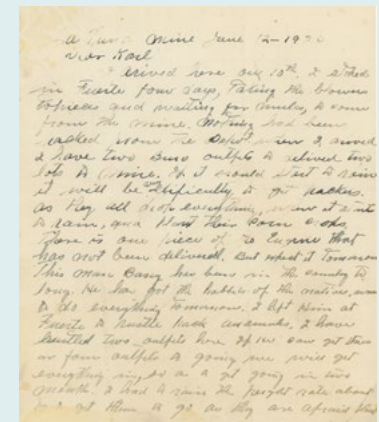 a Tuna Mine June 12-19
Dear Karl
rived here on 10th, I stoped
in Fuerte four days, Taking the blowers
to pieces and waiting for mules, to come
from the mine. Nothing had been
packed from the Depot when I arived
I have two outfits to relived two
lots to mine. If it should start to rain
it will be difficulty to get packers.
as they all drop everything, when it starts
to rain, and plant their corn
There is one piece of to Engine that
has not been delivered. But expect it Tomorrow
This man has been in the country to
long. He has got the habbies of the natives, wants
to do everything Tomorrow. I left him at
Fuerte to hustle back I have
hustled two outfits here If we can get three
or four outfits to going we will get
everything in, so as to get going in two
month. I had to raise the freight rate about
to get them to go as they are afraid